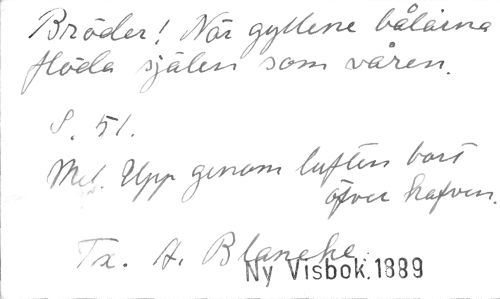 Bröder! När gyllene bålarna
flöda själen som våren.
S. 51.
Mel. Upp genom luften bort
öfver hafven.
Tx. A. Blanche.
Ny Visbok. 1889